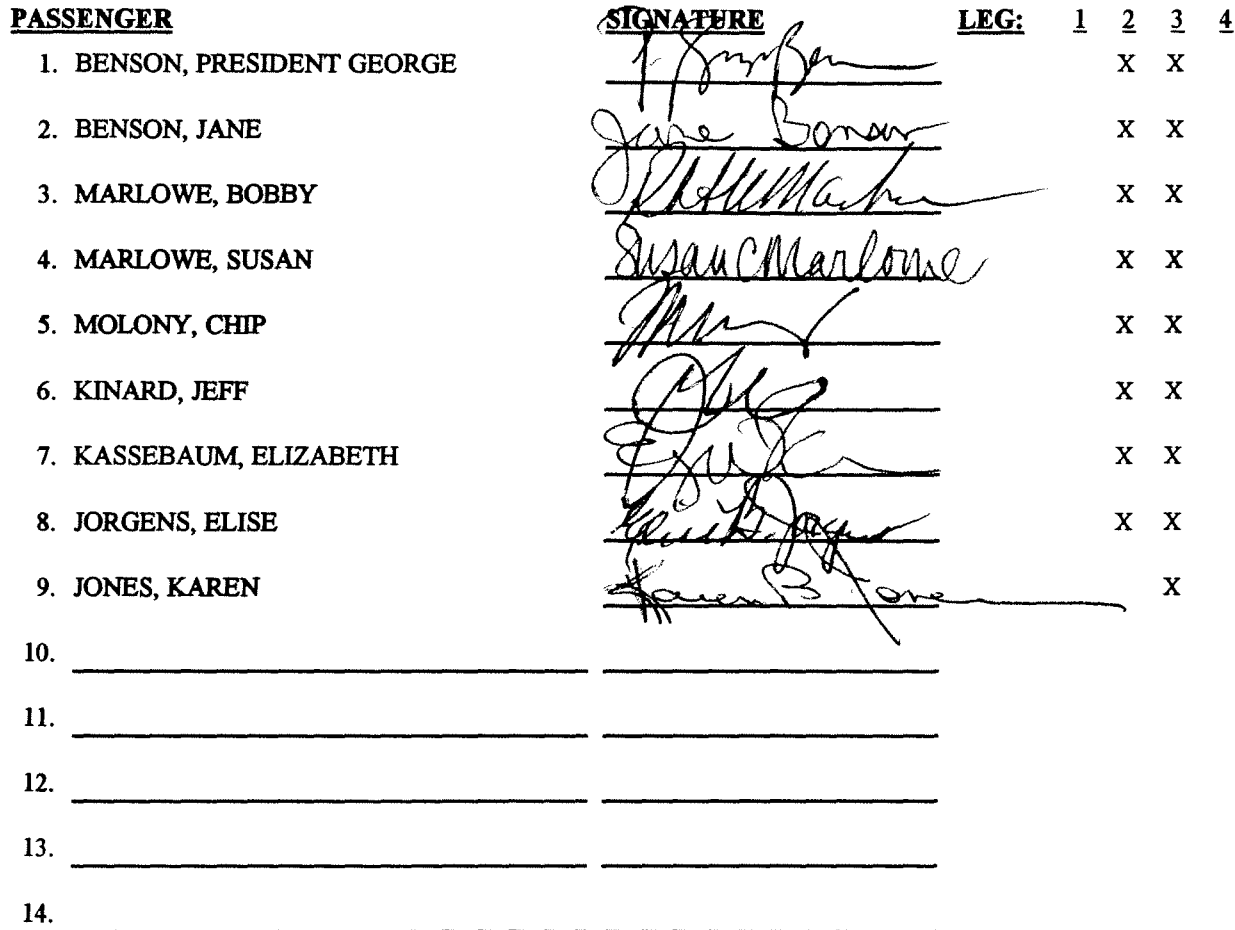 PASSENGER SIGNATURE LEG: 1 2 3 4
1. BENSON, PRESIDENT GEORGE X X
2. BENSON, JANE Jane Benson X X
3. MARLOWE, BOBBY X X
4. MARLOWE, SUSAN Susan C Marlowe X X
5. MOLONY, CHIP X X
6. KINARD, JEFF X X
7. KASSEBAUM, ELIZABETH X X
8. JORGENS, ELISE X X
9. JONES, KAREN Karen B Jones X
10.
11.
12.
13.
14.